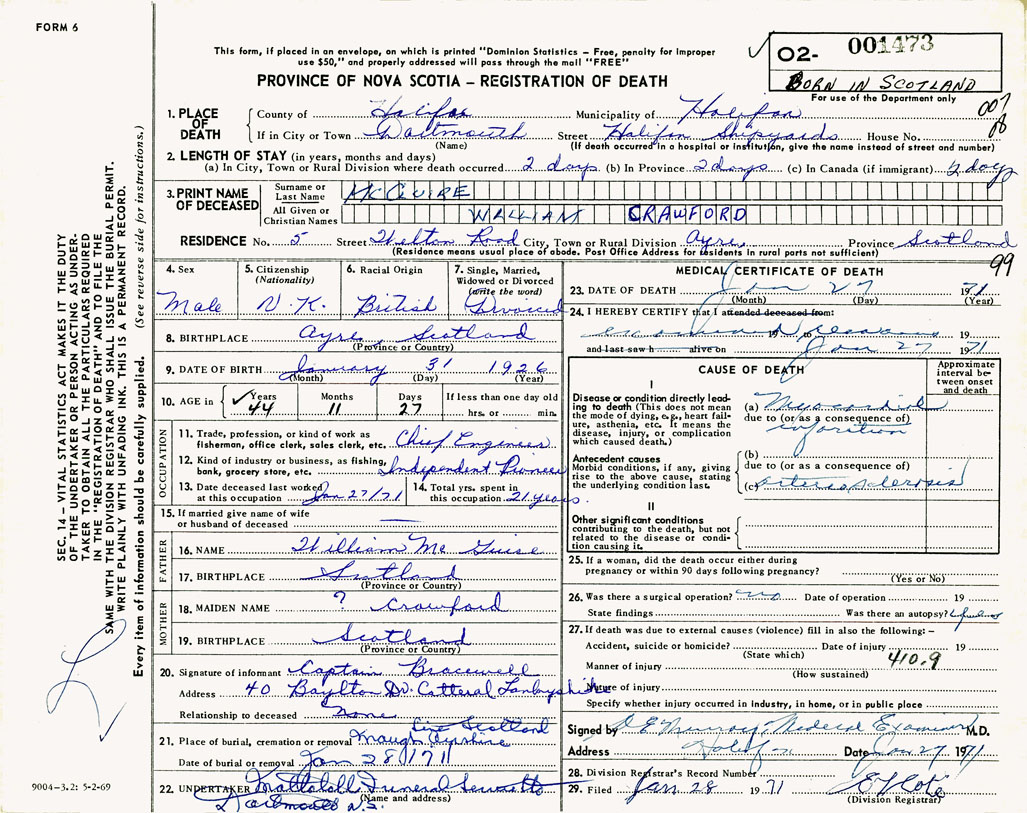 FORM 6
This form, if placed in an envelope, on which is printed "Dominion Statistics – Free, penalty for improper
use $50," and properly addressed will pass through the mail "FREE"
PROVINCE OF NOVA SCOTIA – REGISTRATION OF DEATH
02- 001473
BORN IN SCOTLAND
For use of the Department only
007
1. PLACE OF DEATH
County of Halifax Municipality of Halifax
If in City or Town Dartmouth Street Halifax Shipyards House No.
(Name) (If death occurred in a hospital or institution, give the name instead of street and number)
2. LENGTH OF STAY (in years, months and days)
(a) In City, Town or Rural Division where death occurred 2 days (b) In Province 2 days (c) In Canada (if immigrant) 2 days
3. PRINT NAME OF DECEASED
Surname or Last Name McGUIRE
All Given or Christian Names WILLIAM CRAWFORD
RESIDENCE No. 5 Street Road City, Town or Rural Division Ayre Province Scotland
(Residence means usual place of abode. Post Office Address for residents in rural parts not sufficient)
99
4. Sex
Male
5. Citizenship
(Nationality)
U.K.
6. Racial Origin
British
7. Single, Married,
Widowed or Divorced
(write the word)
Divorced
8. BIRTHPLACE Ayre, Scotland
(Province or Country)
9. DATE OF BIRTH January 31 1926
(Month) (Day) (Year)
10. AGE in Years 44 Months 11 Days 27 If less than one day old
hrs. or min.
OCCUPATION
11. Trade, profession, or kind of work as
fisherman, office clerk, sales clerk, etc. Chief Engineer
12. Kind of industry or business, as fishing,
bank, grocery store, etc. Independent Pioneer
13. Date deceased last worked
at this occupation Jan 27/71
14. Total yrs. spent in
this occupation 21 years
15. If married give name of wife
or husband of deceased —
FATHER
16. NAME William Mc Guire
17. BIRTHPLACE Scotland
(Province or Country)
MOTHER
18. MAIDEN NAME ? Crawford
19. BIRTHPLACE Scotland
(Province or Country)
20. Signature of informant Captain Bracewell
Address 40 Dr. Catteral
Relationship to deceased none
21. Place of burial, cremation or removal Scotland
Date of burial or removal Jan 28/71
22. UNDERTAKER Funeral
(Name and address)
Dartmouth N.S.
MEDICAL CERTIFICATE OF DEATH
23. DATE OF DEATH Jan 27 1971
(Month) (Day) (Year)
24. I HEREBY CERTIFY that I attended deceased from:
19 to 19
and last saw h alive on Jan 27 1971
CAUSE OF DEATH
Approximate
interval be-
tween onset
and death
I
Disease or condition directly lead-
ing to death (This does not mean
the mode of dying, e.g., heart fail-
ure, asthenia, etc. It means the
disease, injury, or complication
which caused death.)
(a) Myocardial
due to (or as a consequence of)
infarction
Antecedent causes
Morbid conditions, if any, giving
rise to the above cause, stating
the underlying condition last.
(b)
due to (or as a consequence of)
(c) arteriosclerosis
II
Other significant conditions
contributing to the death, but not
related to the disease or condi-
tion causing it.
25. If a woman, did the death occur either during
pregnancy or within 90 days following pregnancy?
(Yes or No)
26. Was there a surgical operation? no Date of operation 19
State findings Was there an autopsy?
27. If death was due to external causes (violence) fill in also the following: –
Accident, suicide or homicide? Date of injury 19
(State which)
410.9
Manner of injury
(How sustained)
Nature of injury
Specify whether injury occurred in industry, in home, or in public place
Signed by Medical Examiner M.D.
Address Halifax Date Jan 27 1971
28. Division Registrar's Record Number
29. Filed Jan. 28 1971
(Division Registrar)
SEC. 14 – VITAL STATISTICS ACT MAKES IT THE DUTY
OF THE UNDERTAKER OR PERSON ACTING AS UNDER-
TAKER TO OBTAIN ALL THE PARTICULARS REQUIRED
IN THE "REGISTRATION OF DEATH" AND TO FILE THE
SAME WITH THE DIVISION REGISTRAR WHO SHALL ISSUE THE BURIAL PERMIT.
WRITE PLAINLY WITH UNFADING INK. THIS IS A PERMANENT RECORD.
Every item of information should be carefully supplied. (See reverse side for instructions.)
9004–3.2: 5-2-69